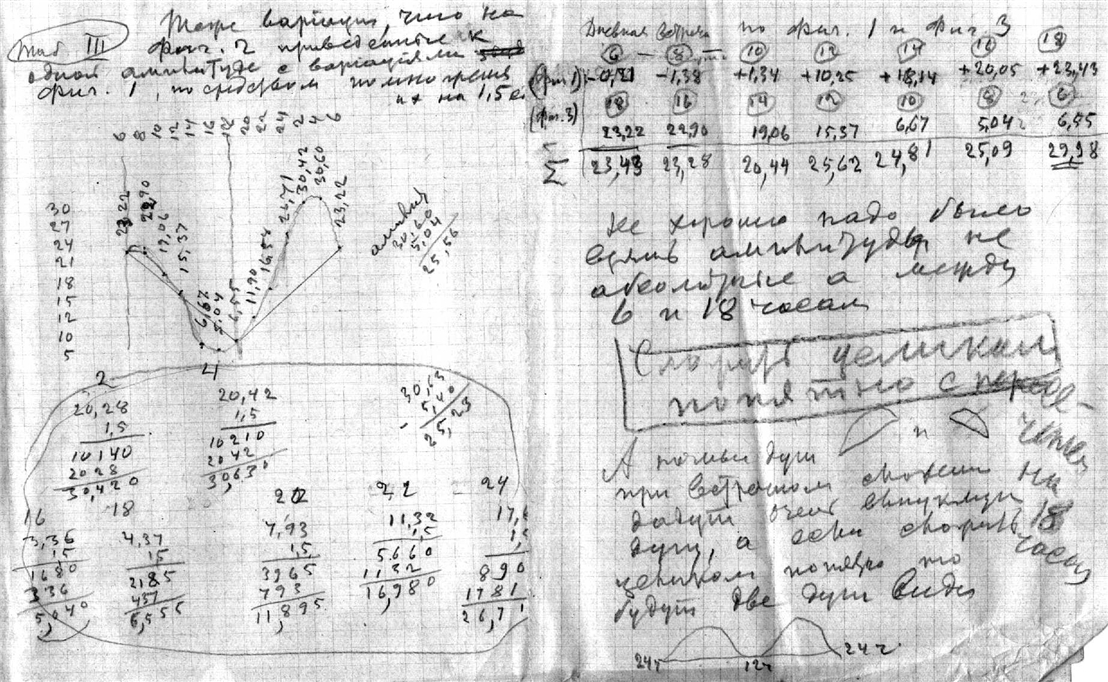 Таб III
Те же вариации, что на
фиг. 2 приведенные к
одной амплитуде с вариациями
фиг. 1, посредством помножения
их на 1,5
6 8 10 12 14 16 18 20 22 24 2 4 6
30
27
24
21
18
15
12
10
5
23,22
22,90
19,06
15,37
6,67
5,04
6,55
11,90
16,54
26,71
30,42
30,60
23,22
30,60
5,04
25,56
2
20,28
1,5
10140
2028
30,420
4
20,42
1,5
10210
2042
30,630
30,63
5,40
25,23
16
3,36
15
1680
336
5,040
18
4,37
15
2185
437
6,555
20
7,93
1,5
3965
793
11,895
22
11,32
1,5
5660
1132
16,980
24
17,
890
1781
26,71
Дневная встреча по фиг. 1 и фиг 3
6 8 10 12 14 16 18
(фиг. 1) -1,38 +1,34 +10,25 +18,14 +20,05 +23,43
18 16 14 12 10 8 6
(фиг. 3) 23,22 22,90 19,06 15,37 6,67 5,04 6,55
Σ 23,43 23,28 20,44 25,62 24,81 25,09 29,98
Не хорошо надо было
взять амплитуды не
абсолютные а между
6 и 18 часами
Сложить целиком
попятно с пересечением на 18 часах
А помьи дуги и
при встречном сложении
дадут очень выпуклую
дугу, а если сложить
целиком попятно то
будут две дуги вида
24ч 12ч 24ч